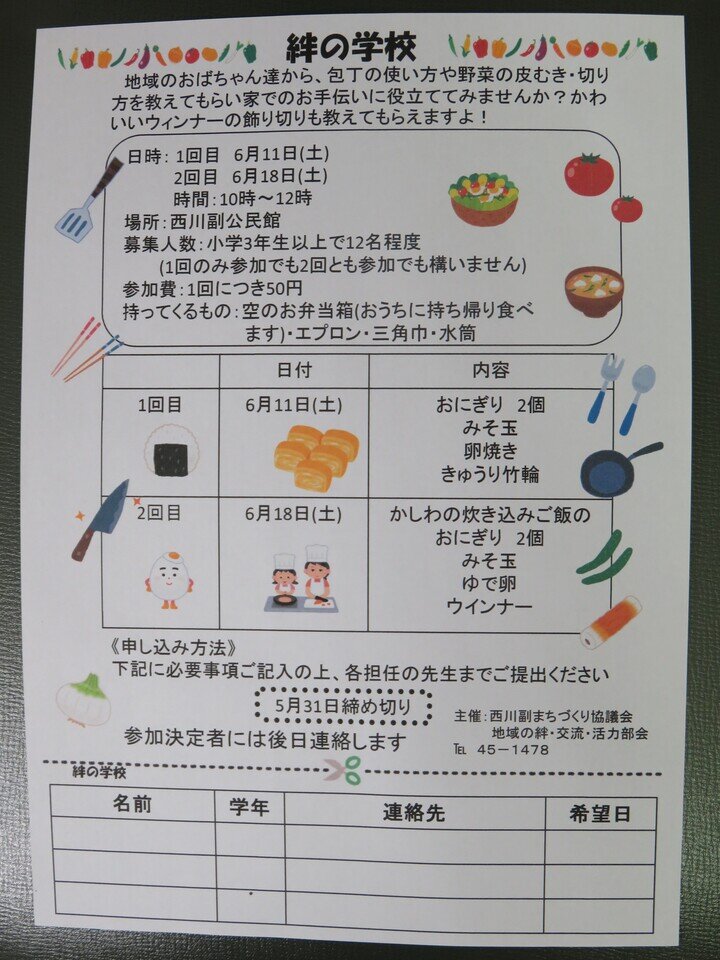 絆の学校
地域のおばちゃん達から、包丁の使い方や野菜の皮むき・切り
方を教えてもらい家でのお手伝いに役立ててみませんか？かわ
いいウィンナーの飾り切りも教えてもらえますよ！
日時：1回目 6月11日(土)
2回目 6月18日(土)
時間：10時～12時
場所：西川副公民館
募集人数：小学3年生以上で12名程度
(1回のみ参加でも2回とも参加でも構いません)
参加費：1回につき50円
持ってくるもの：空のお弁当箱(おうちに持ち帰り食べ
ます)・エプロン・三角巾・水筒
日付 内容
1回目 6月11日(土) おにぎり 2個
みそ玉
卵焼き
きゅうり竹輪
2回目 6月18日(土) かしわの炊き込みご飯の
おにぎり 2個
みそ玉
ゆで卵
ウインナー
《申し込み方法》
下記に必要事項ご記入の上、各担任の先生までご提出ください
5月31日締め切り
参加決定者には後日連絡します
主催：西川副まちづくり協議会
地域の絆・交流・活力部会
℡ 45－1478
絆の学校
名前 学年 連絡先 希望日